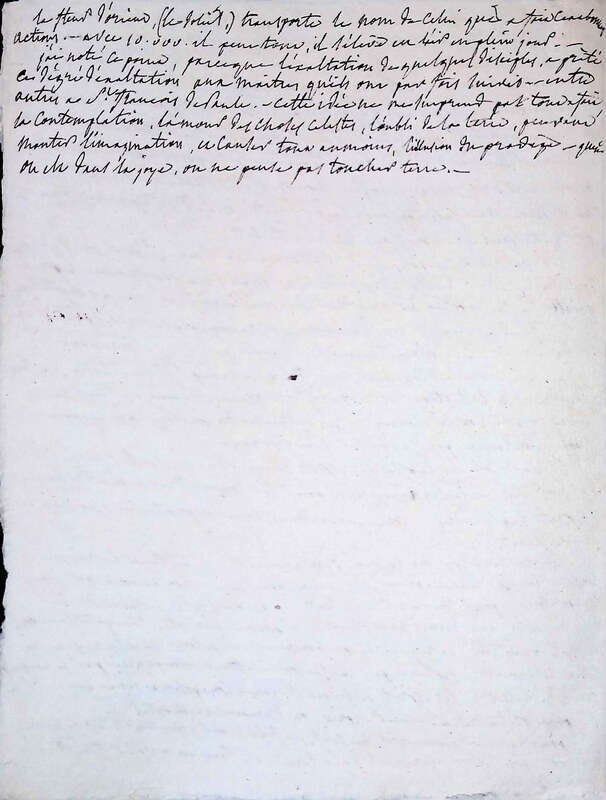 la fleur d'orient, (le soleil,) transporte le nom de celui qui a fait ces bonnes
actions. — avec 10.000. il  il s'élève en l'air en plein jour. —
j'ai noté ce point, parceque l'exaltation de quelques disciples, a prêté
ce degré d'exaltation aux maîtres qu'ils ont par fois suivis — entre
autres à St. françois de Paule. — cette idée ne me surprend pas tout à fait
la Contemplation, l'amour des choses celestes, l'oubli de la terre, peuvent
monter l'imagination, et causer tout au moins, l'illusion du prodige — quand
on est dans la joye, on ne pense pas toucher terre. —